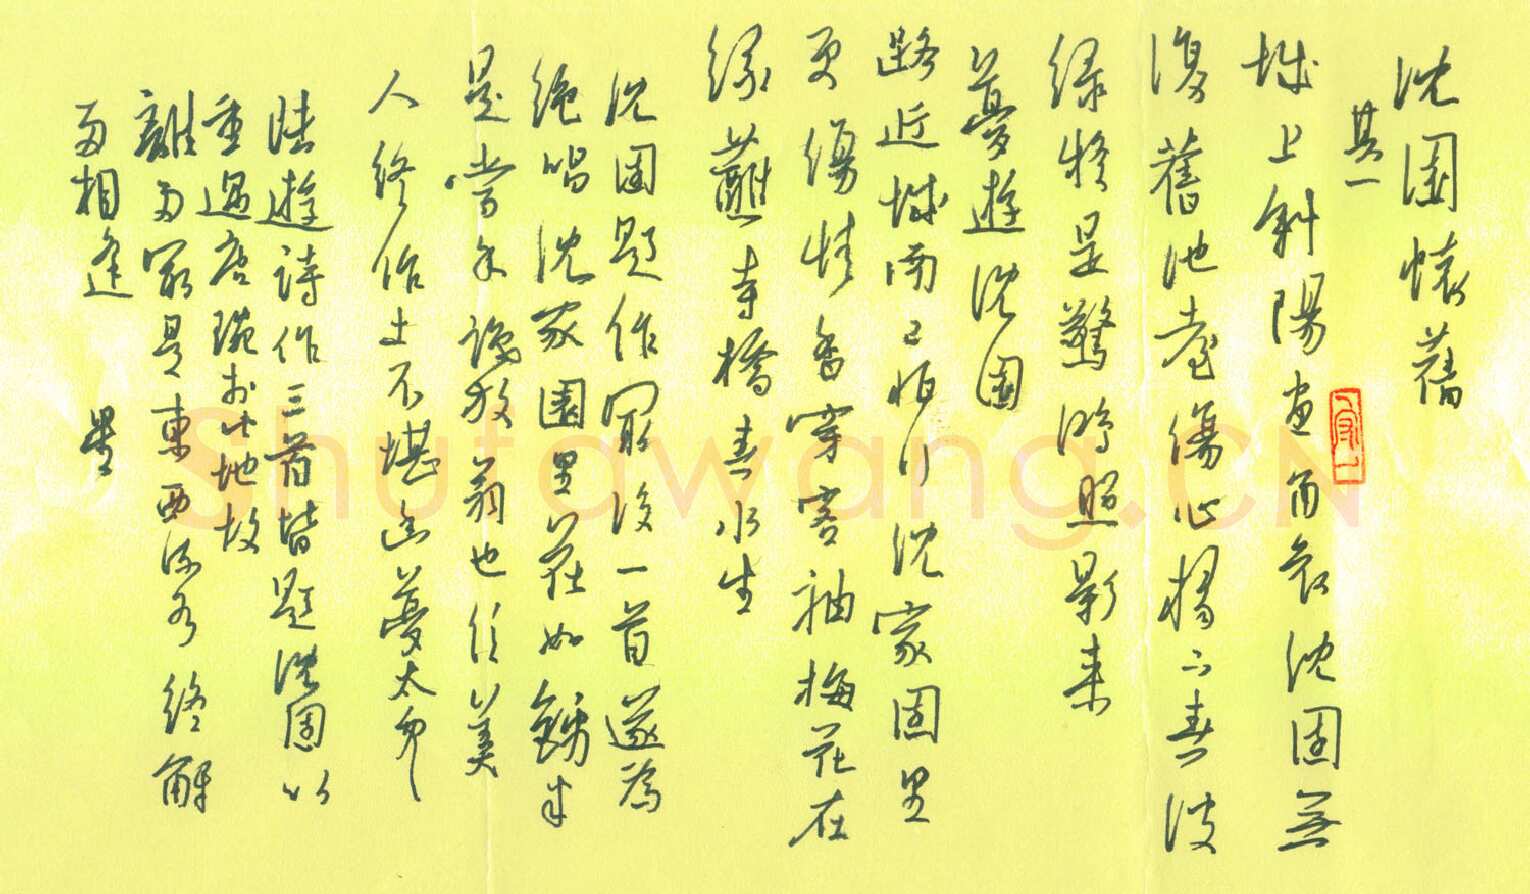 沈園懷舊
其一
城上斜陽畫角哀沈園無
復舊池臺傷心橋下春波
綠疑是驚鴻照影來
夢遊沈園
路近城南已怕行沈家園里
更傷情香穿客袖梅花在
綠蘸寺橋春水生
沈園題作最後一首遂為
絕唱沈家園里花如錦半
是當年識放翁也信美
人終作土不堪幽夢太匆匆
陸遊詩作三首皆題沈園以
重過唐琬於此地故
離而冢是東西流終解
相逢
Shufawang.CN